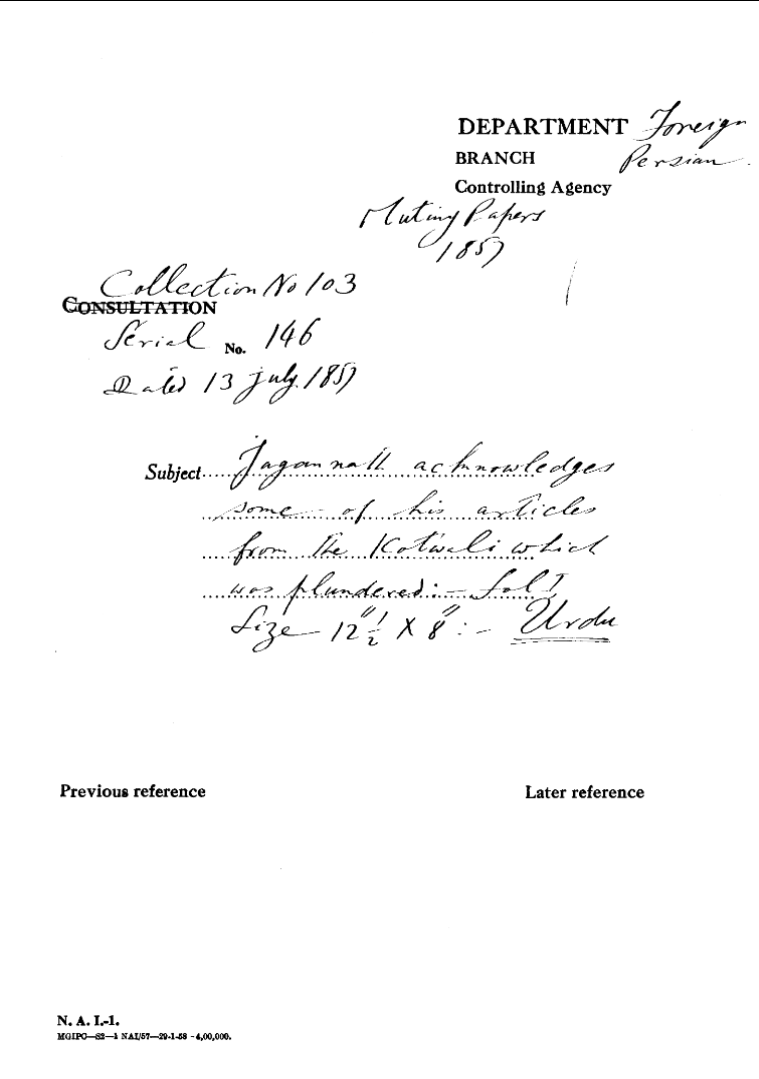 DEPARTMENT Foreign
BRANCH Persian.
Controlling Agency
Mutiny Papers
1857
Collection No 103
CONSULTATION
Serial No. 146
Dated 13 July. 1857
Subject Jagannath acknowledges
some of his articles
from the Kotwali which
was plundered:- Fol I
Size 12"½ X 8":- Urdu
Previous reference
Later reference
N. A. I.-1.
MGIPC—S2—1 NAI/57—29-1-58 -4,00,000.